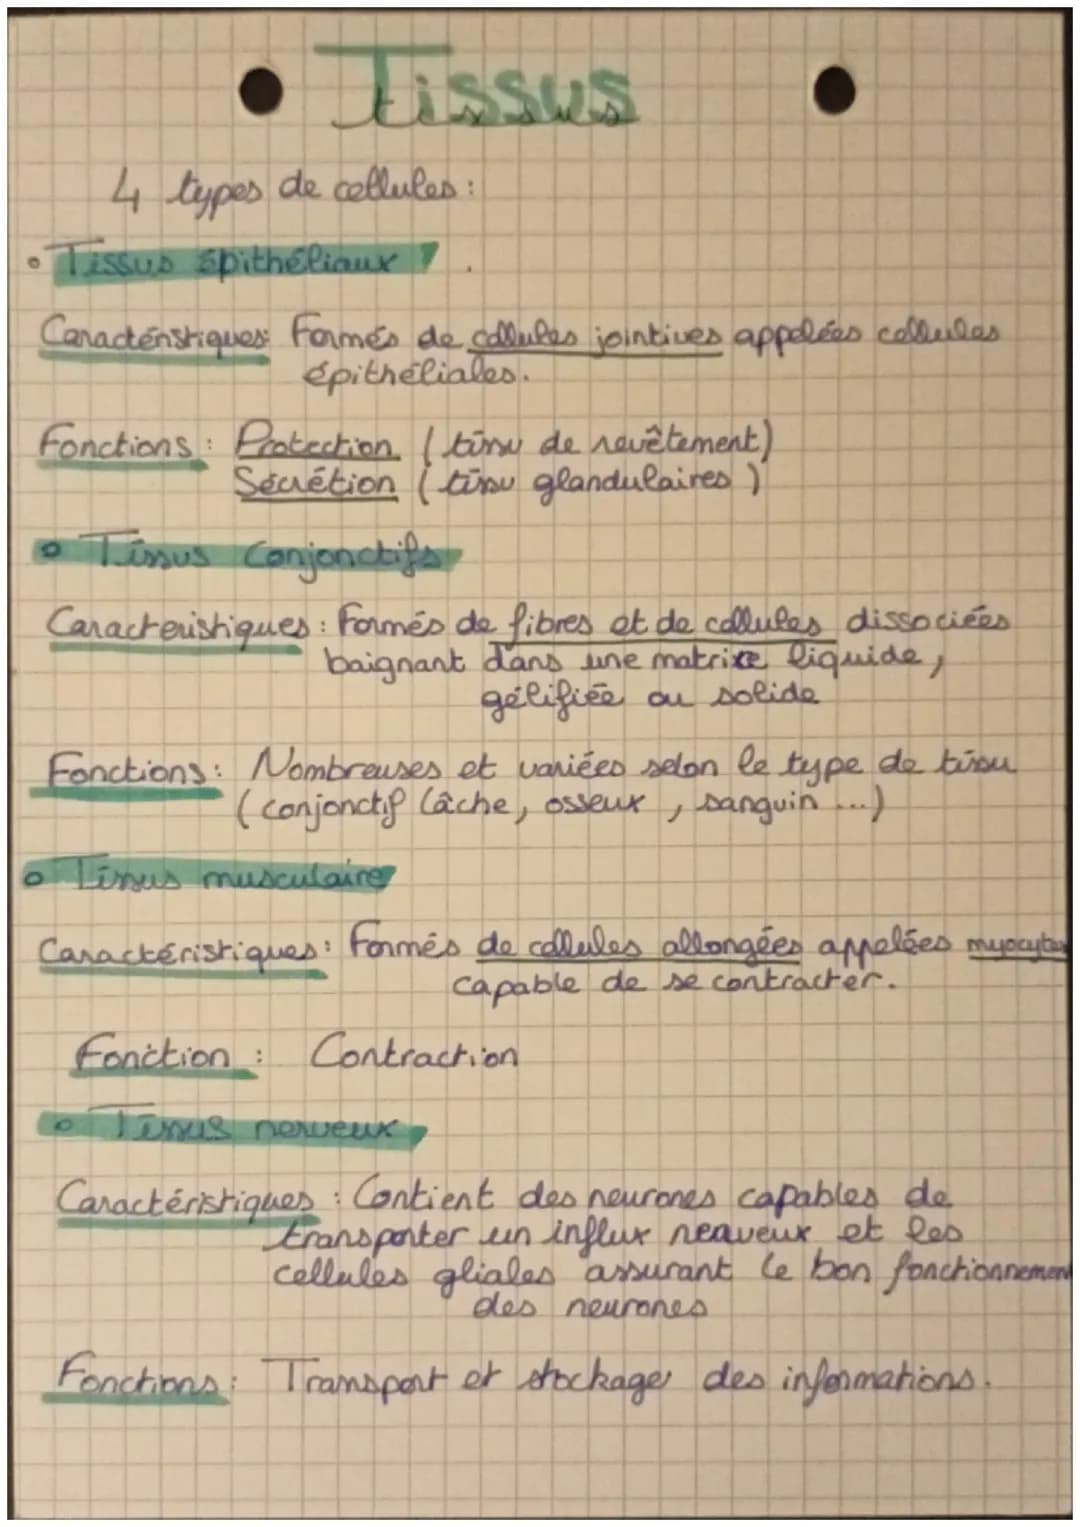 Tissus
4 types de cellules :
• Tissus épithéliaux
Caractéristiques: Formés de cellules jointives appelées cellules
épithéliales.
Fonctions : Protection (tissu de revêtement)
Sécrétion (tissu glandulaires)
• Tissus Conjonctifs
Caracteristiques : Formés de fibres et de cellules dissociées
baignant dans une matrice liquide,
gélifiée ou solide
Fonctions : Nombreuses et variées selon le type de tissu
(conjonctif lâche, osseux, sanguin ...)
• Tissus musculaire
Caractéristiques : Formés de cellules allongées appelées myocytes
capable de se contracter.
Fonction : Contraction
• Tissus nerveux
Caractéristiques : Contient des neurones capables de
transporter un influx nerveux et les
cellules gliales assurant le bon fonctionnement
des neurones
Fonctions : Transport et stockage des informations.